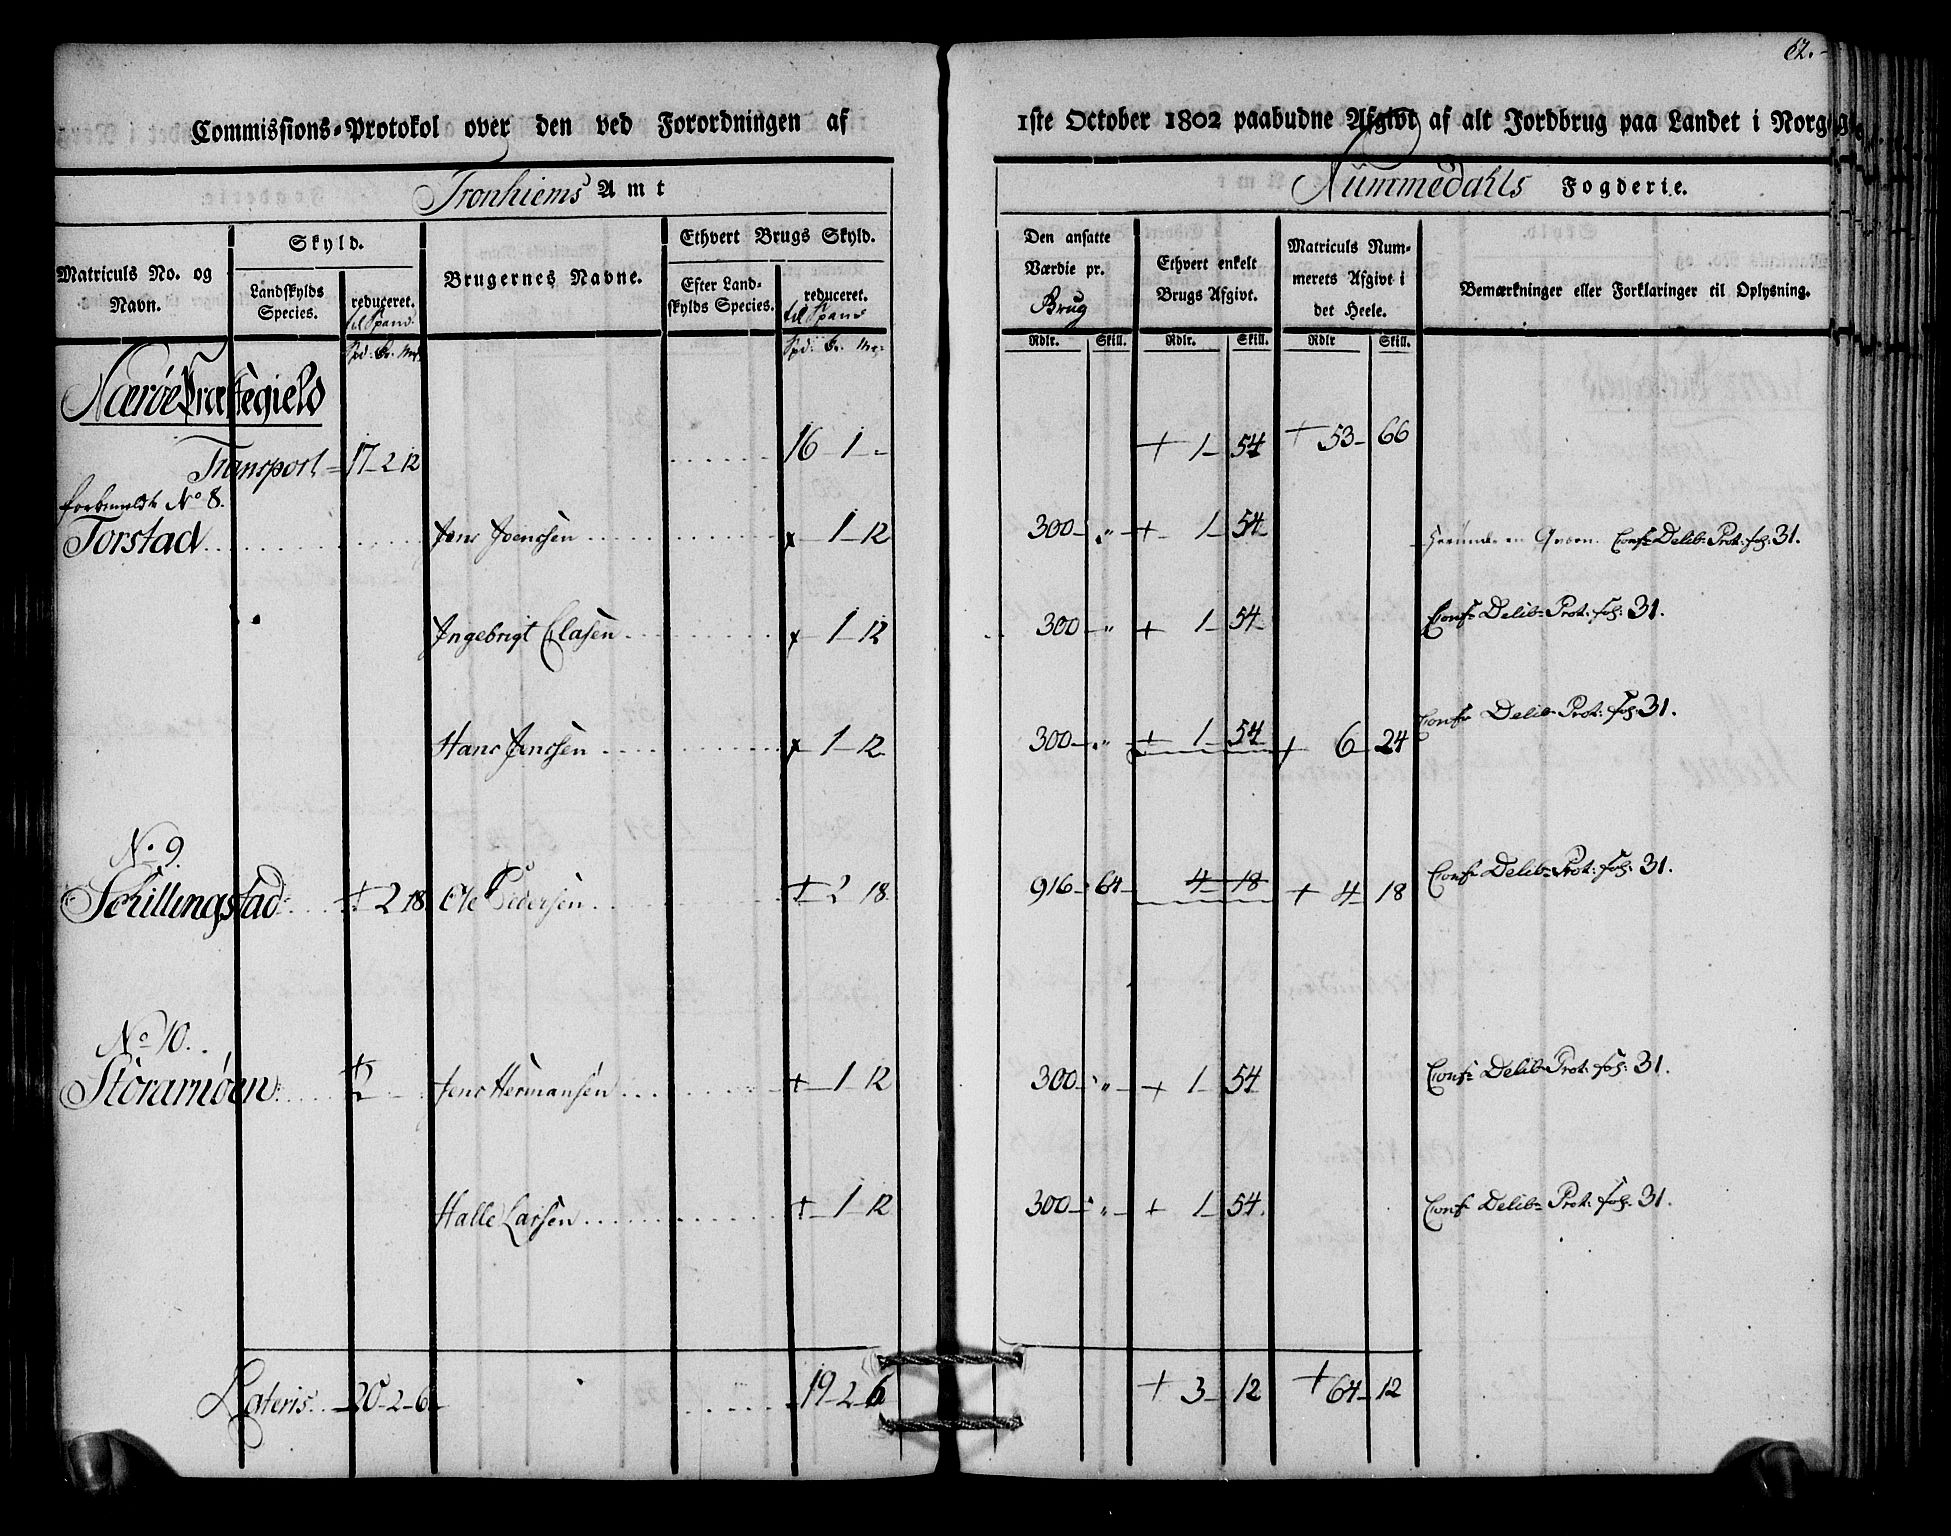 62.
Commissions-Protokol over den ved Forordningen af 1ste October 1802 paabudne Afgivt af alt Jordbrug paa Landet i Norge
Tronhiems Amt Nummedahls Fogderie.
Matriculs No. og Navn.
Skyld.
Landskylds Species.
reduceret. til Spand
Spd: Ör. Mrk:
Brugernes Navne.
Ethvert Brugs Skyld.
Efter Landskylds Species.
reduceret. til Spand
Spd: Ör. Mrk:
Den ansatte Værdie pr. Brug
Rdlr. Skill.
Ethvert enkelt Brugs Afgivt.
Rdlr. Skill.
Matriculs Nummerets Afgivt i det Heele.
Rdlr Skill.
Bemærkninger eller Forklaringer til Oplysning.
Nærøe Præstegield
Transport 17-2-12 16-1-" + 1-54 + 53-66
forbemeldte No 8.
Torstad Jens Joenssen x 1-12 300-" + 1-54 Conf: Delib: Prot: fol: 31.
Ingebrigt Olasen x 1-12 300-" + 1-54 Conf: Delib: Prot: fol: 31.
Hans Jenssen x 1-12 300-" + 1-54 + 6-24 Conf: Delib: Prot: fol: 31.
No 9.
Schillingstad + 2 18 Ole Pedersen + 2 18. 916-64 4-18 + 4-18 Conf: Delib: Prot: fol: 31.
No 10.
Storamøen + 2 - Jens Hermansen + 1-12 300-" + 1-54 Conf: Delib: Prot: fol: 31.
Halle Larsen + 1-12 300-" + 1-54. Conf: Delib: Prot: fol: 31.
Lateris 20-2-6 19-2-6 + 3-12 + 64-12